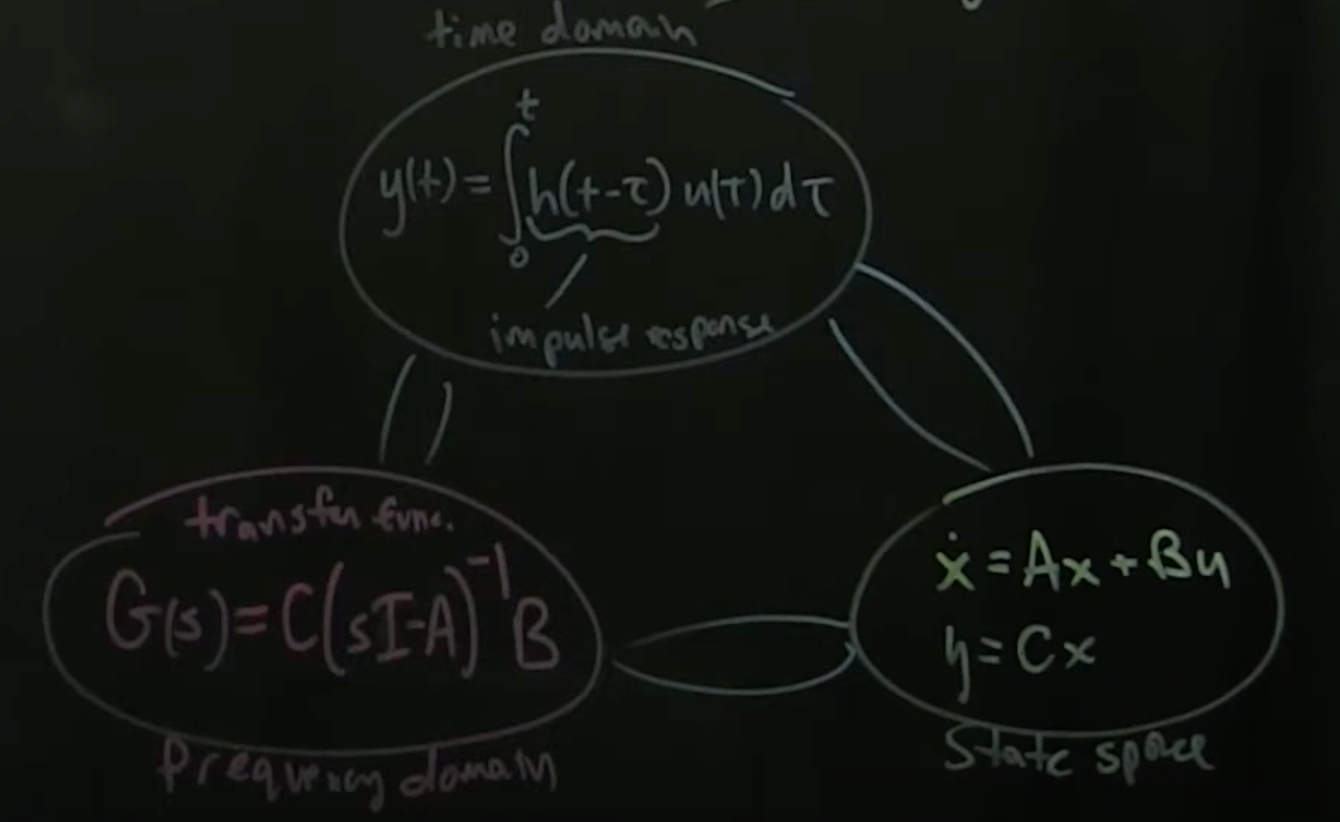 time domain
y(t) = ∫₀ᵗ h(t-τ) u(τ) dτ
impulse response
transfer func.
G(s) = C(sI-A)⁻¹B
frequency domain
ẋ = Ax + Bu
y = Cx
State space